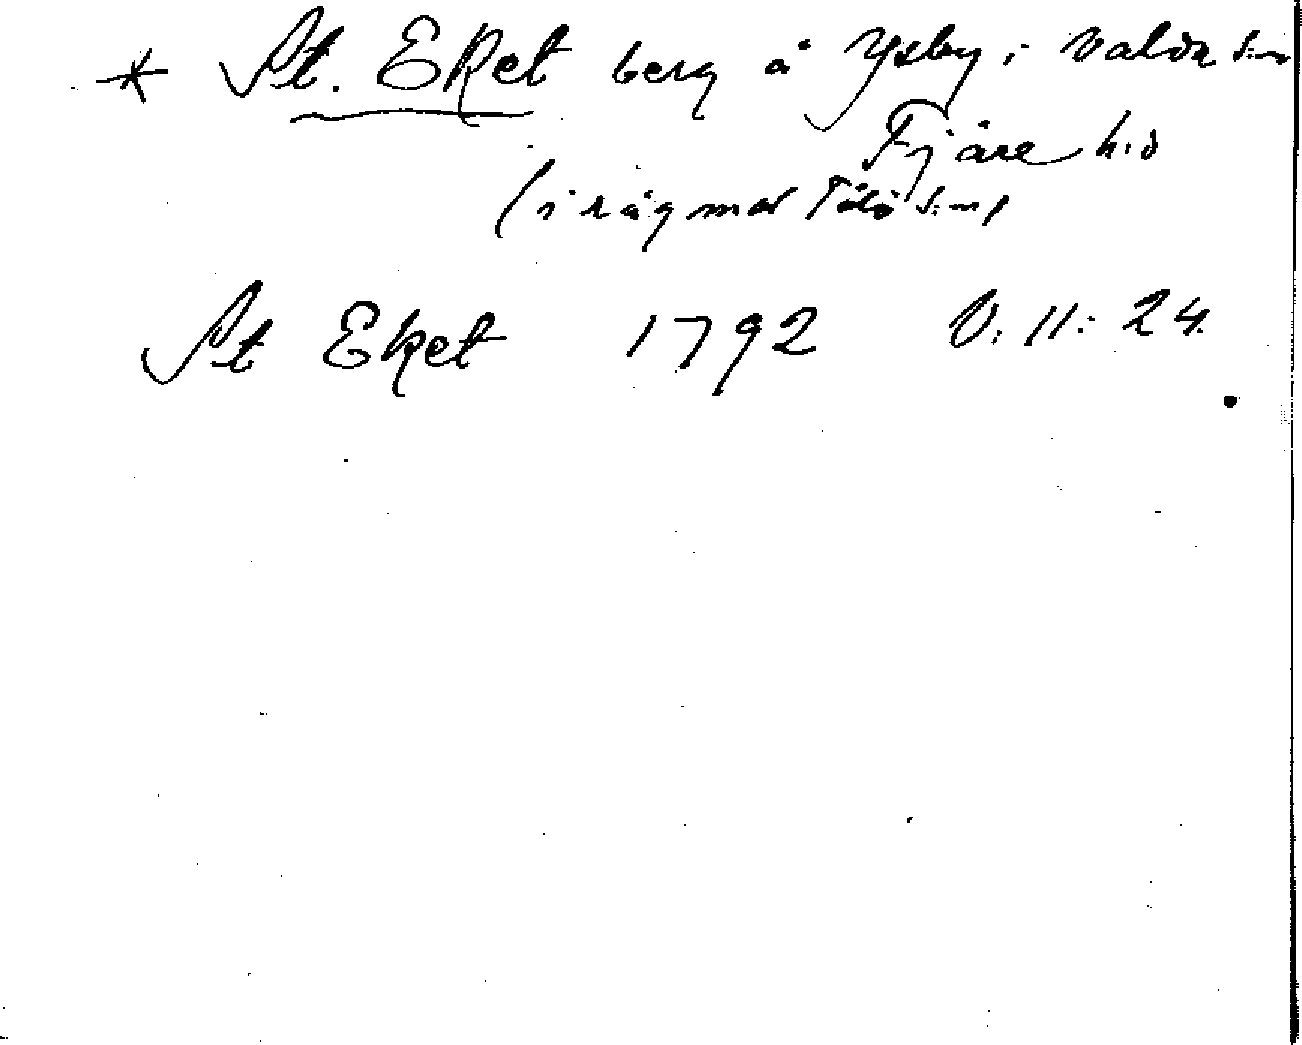 * St. Eket berg å Ysby i Valda s:n
Fjäre h:d
(i rågms mot Tölö s:n)
St Eket 1792 V. 11: 24.